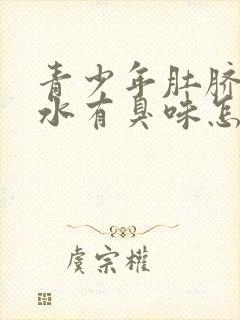 青少年肚脐
水有臭味怎
虞宗權